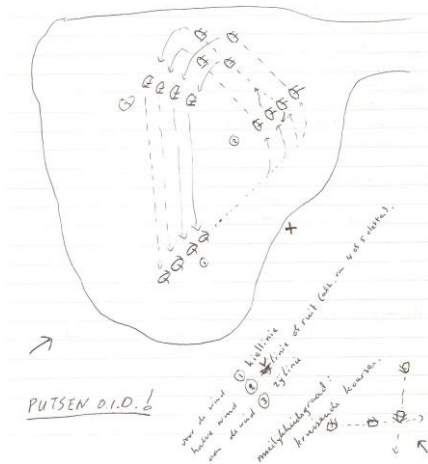 ①
②
③
PUTSEN O.I.D.!
voor de wind ① kiellinie
halve wind ② linie of ruit (afh. van 4 of 5 vletten).
aan de wind ③ zijlinie
moeilijkheidsgraad:
kruisende koersen.